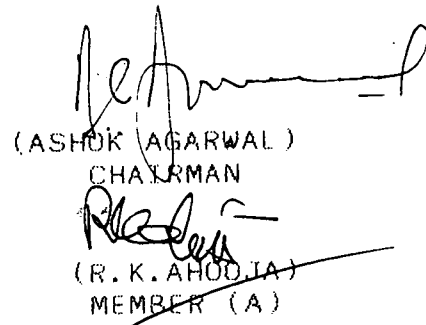 (ASHOK AGARWAL)
CHAIRMAN
(R.K.AHOOJA)
MEMBER (A)